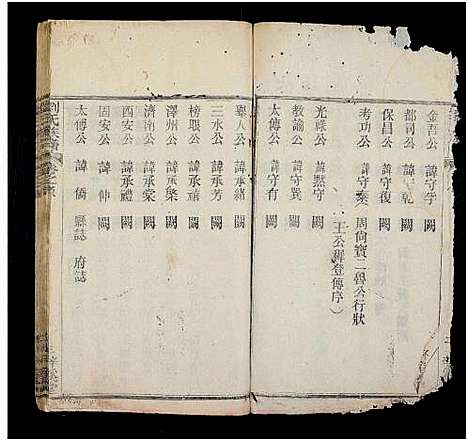 金吾公 諱守孚
都司公 諱守乾 闕
保昌公 諱守復 闕
考功公 諱守蒙 周尙寶二魯公行狀
王公穉登傳序
光祿公 諱黙守 闕
教諭公 諱守巽 闕
太傅公 諱守有 闕
舉人公 諱承緒 闕
三水公 諱承芳 闕
榜眼公 諱承禧 闕
澤州公 諱承棨 闕
濟南公 諱承棠 闕
西安公 諱承禮 闕
固安公 諱伸 闕
太傅公 諱僑 縣誌 府誌
劉氏族譜